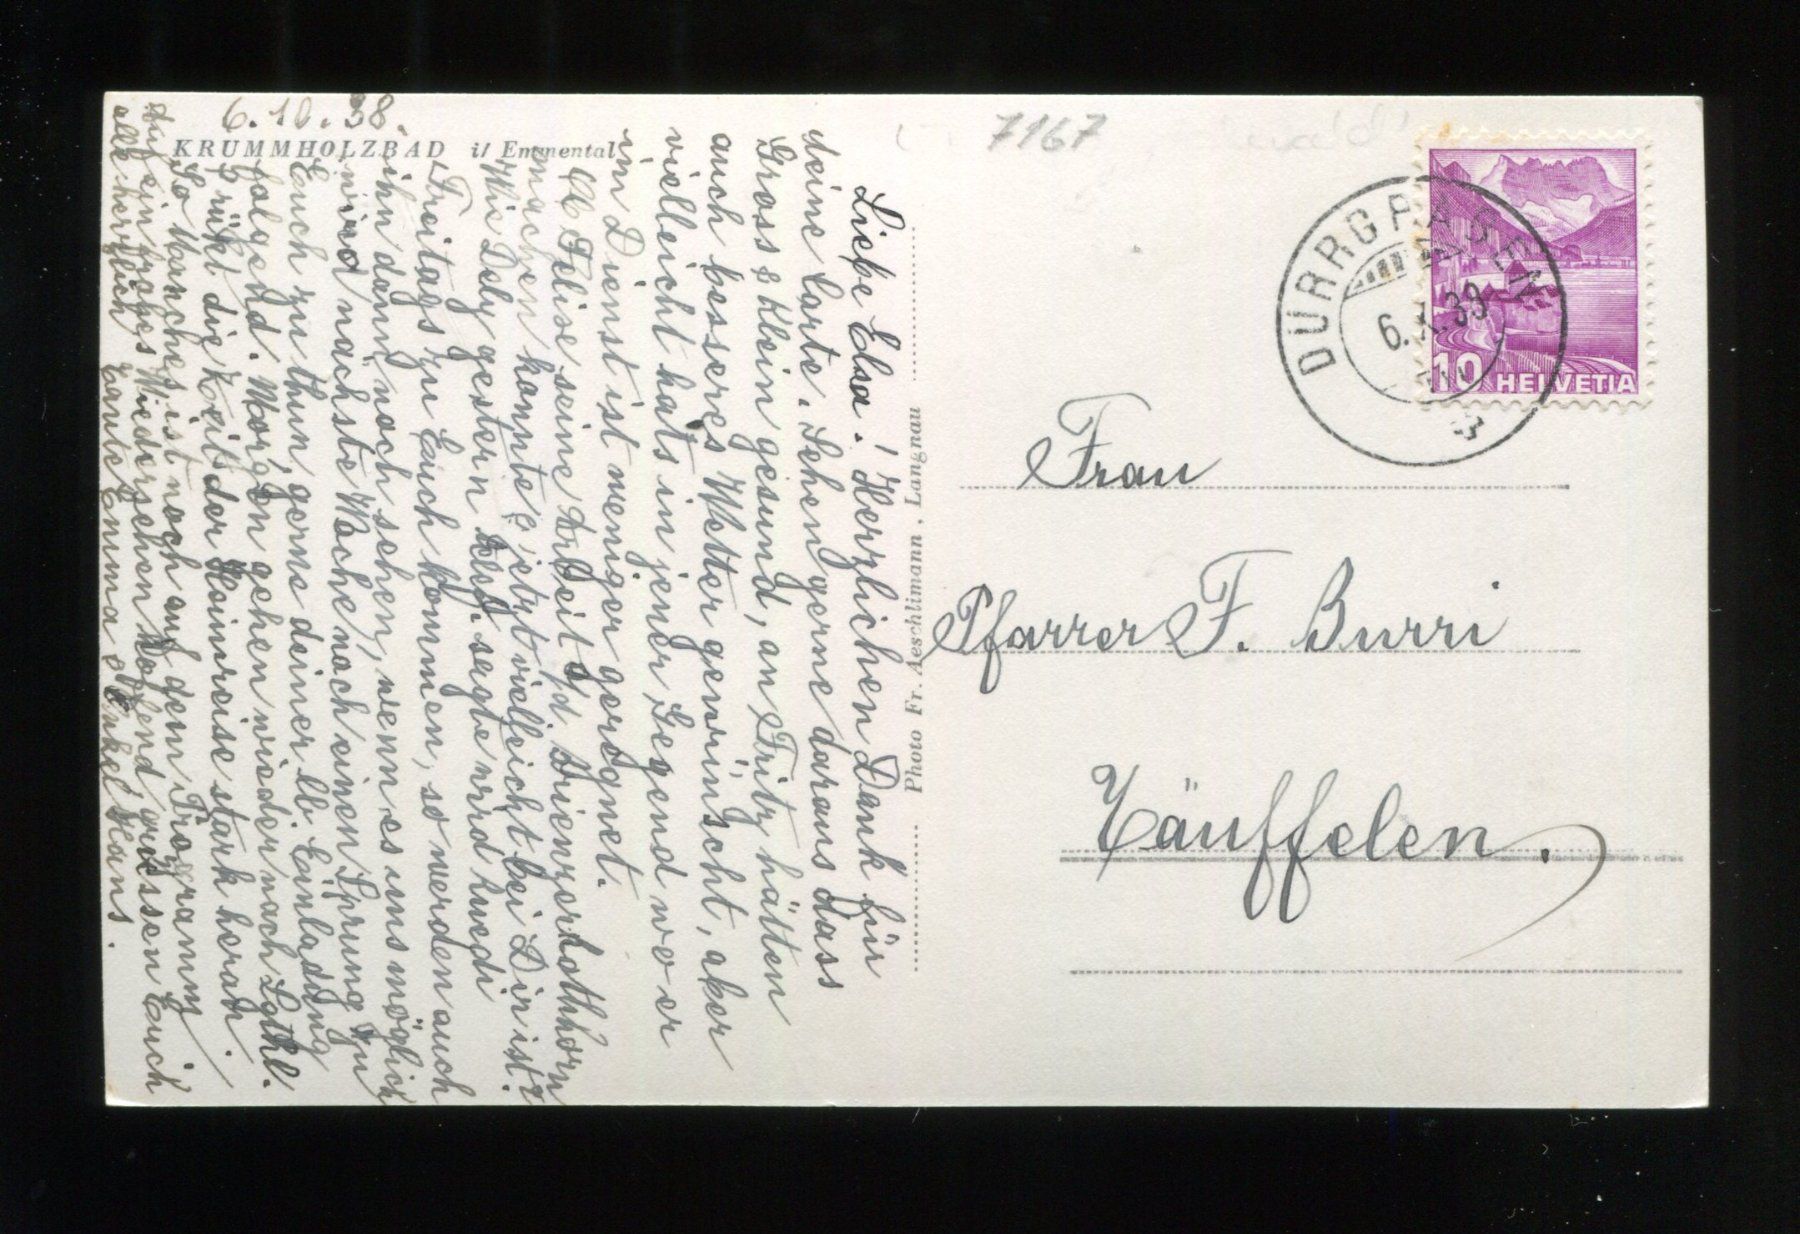 6.10.38.
KRUMMHOLZBAD i/ Emmental
Liebe Elsa! Herzlichen Dank für
deine Carte. Sehen gerne daraus dass
Gross & Klein gesund, an Fritz hätten
auch besseres Wetter gewünscht, aber
vielleicht hats in jener Gegend wo er
im Dienst ist weniger geregnet.
Ob Felix seine Arbeit a/d. Brienzerrothhorn
machen konnte, & jetzt vielleicht bei Dir ist?
Wie Dely gestern sagte wird Ruedi
Freitags zu Euch kommen, so werden auch
ihn dann noch sehen, wenn es uns möglich
wird nächste Woche nach einen Sprung zu
Euch zu thun, gerne deiner lb. Einladung
folgend. Morgen gehen wieder nach
So Manches ist noch auf dem Programm
& rükt die Zeit der Heimreise stark heran.
Auf ein frohes Wiedersehen hoffend grüssen Euch
alle herzlich Tante Emma & Onkel Hans.
Photo Fr. Aeschlimann, Langnau
7167
DÜRRGRABEN
6.X.38
10 HELVETIA
Frau
Pfarrer F. Burri
Täuffelen.